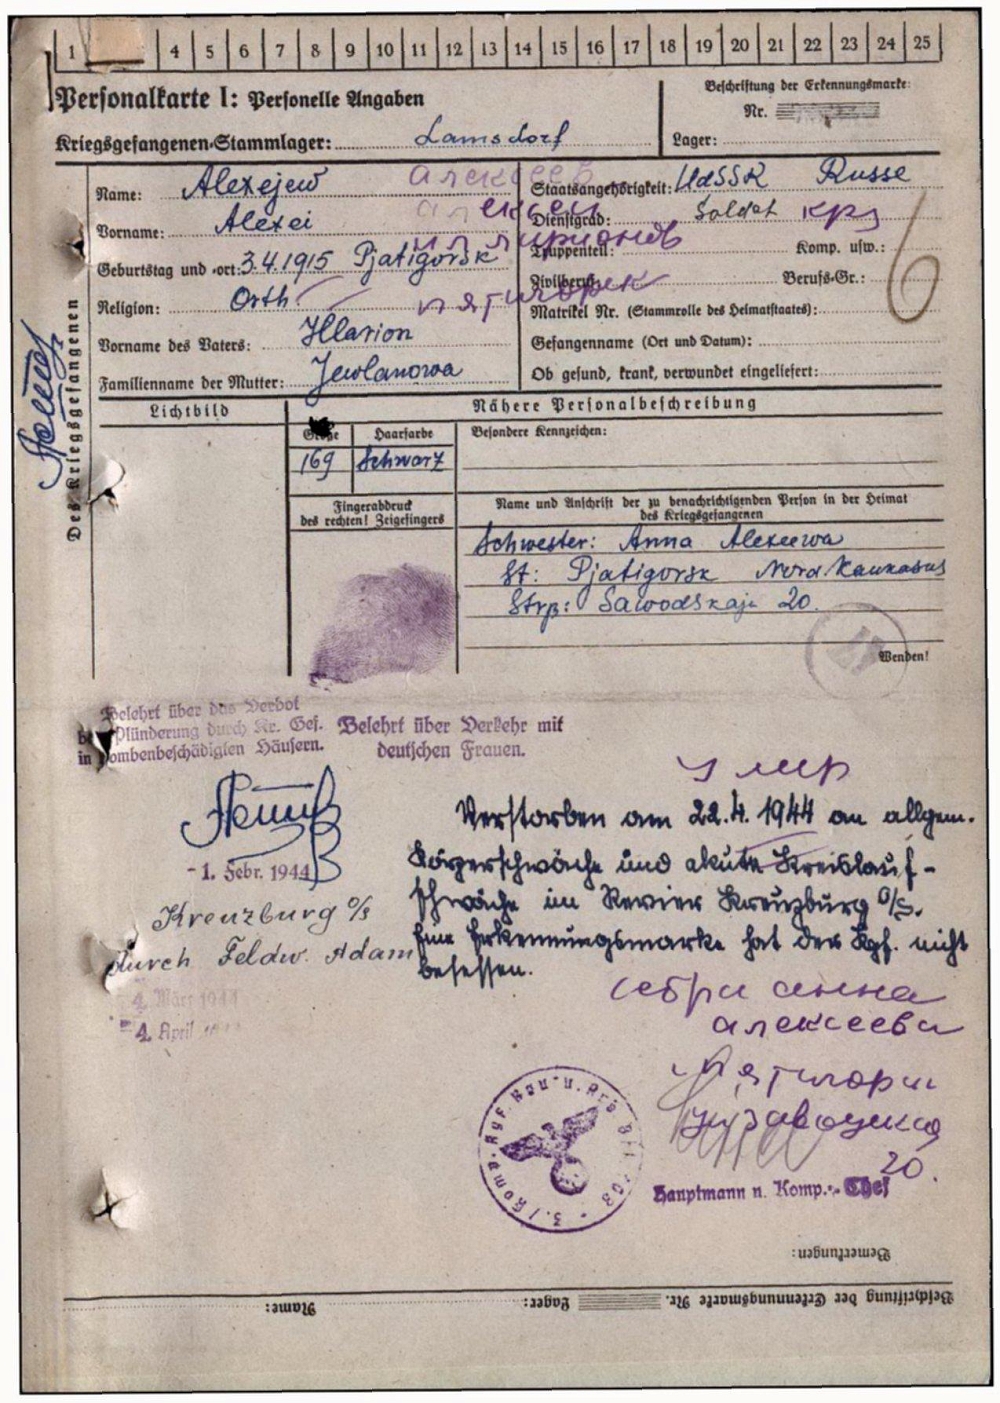 1 4 5 6 7 8 9 10 11 12 13 14 15 16 17 18 19 20 21 22 23 24 25
Personalkarte I: Personelle Angaben
Beschriftung der Erkennungsmarke:
Nr.
Kriegsgefangenen-Stammlager: Lamsdorf
Lager:
Des Kriegsgefangenen
Name: Alexejew
алексеев
Staatsangehörigkeit: UdSSR Russe
Vorname: Alexei
алексей
Dienstgrad: Soldat кр
Geburtstag und -ort: 3.4.1915 Pjatigorsk
илларионов
Truppenteil: Komp. usw.:
6
Religion: Orth
пятигорск
Zivilberuf: Berufs-Gr.:
Matrikel Nr. (Stammrolle des Heimatstaates):
Vorname des Vaters: Illarion
Gefangenname (Ort und Datum):
Familienname der Mutter: Jewlanowa
Ob gesund, krank, verwundet eingeliefert:
Lichtbild
Nähere Personalbeschreibung
Größe Haarfarbe
Besondere Kennzeichen:
169 Schwarz
Fingerabdruck
des rechten! Zeigefingers
Name und Anschrift der zu benachrichtigenden Person in der Heimat
des Kriegsgefangenen
Schwester: Anna Alexeewa
St: Pjatigorsk Nord.Kaukasus
Strß: Sawodskaja 20.
Wenden!
Belehrt über das Verbot
Plünderung durch Kr. Gef.
in bombenbeschädigten Häusern.
Belehrt über Verkehr mit
deutschen Frauen.
умер
Verstorben am 22.4.1944 an allgem.
Körperschwäche und akute Kreislauf-
schwäche im Revier Kreuzburg O/S.
Eine Erkennungsmarke hat der Kgf. nicht
besessen.
-1. Febr. 1944
Kreuzburg o/s
durch Feldw. Adam
4. März 1944
4. April
анна
алексеева
20.
Hauptmann u. Komp.-Chef
Bemerkungen:
Beschriftung der Erkennungsmarke Nr. Lager: Name: